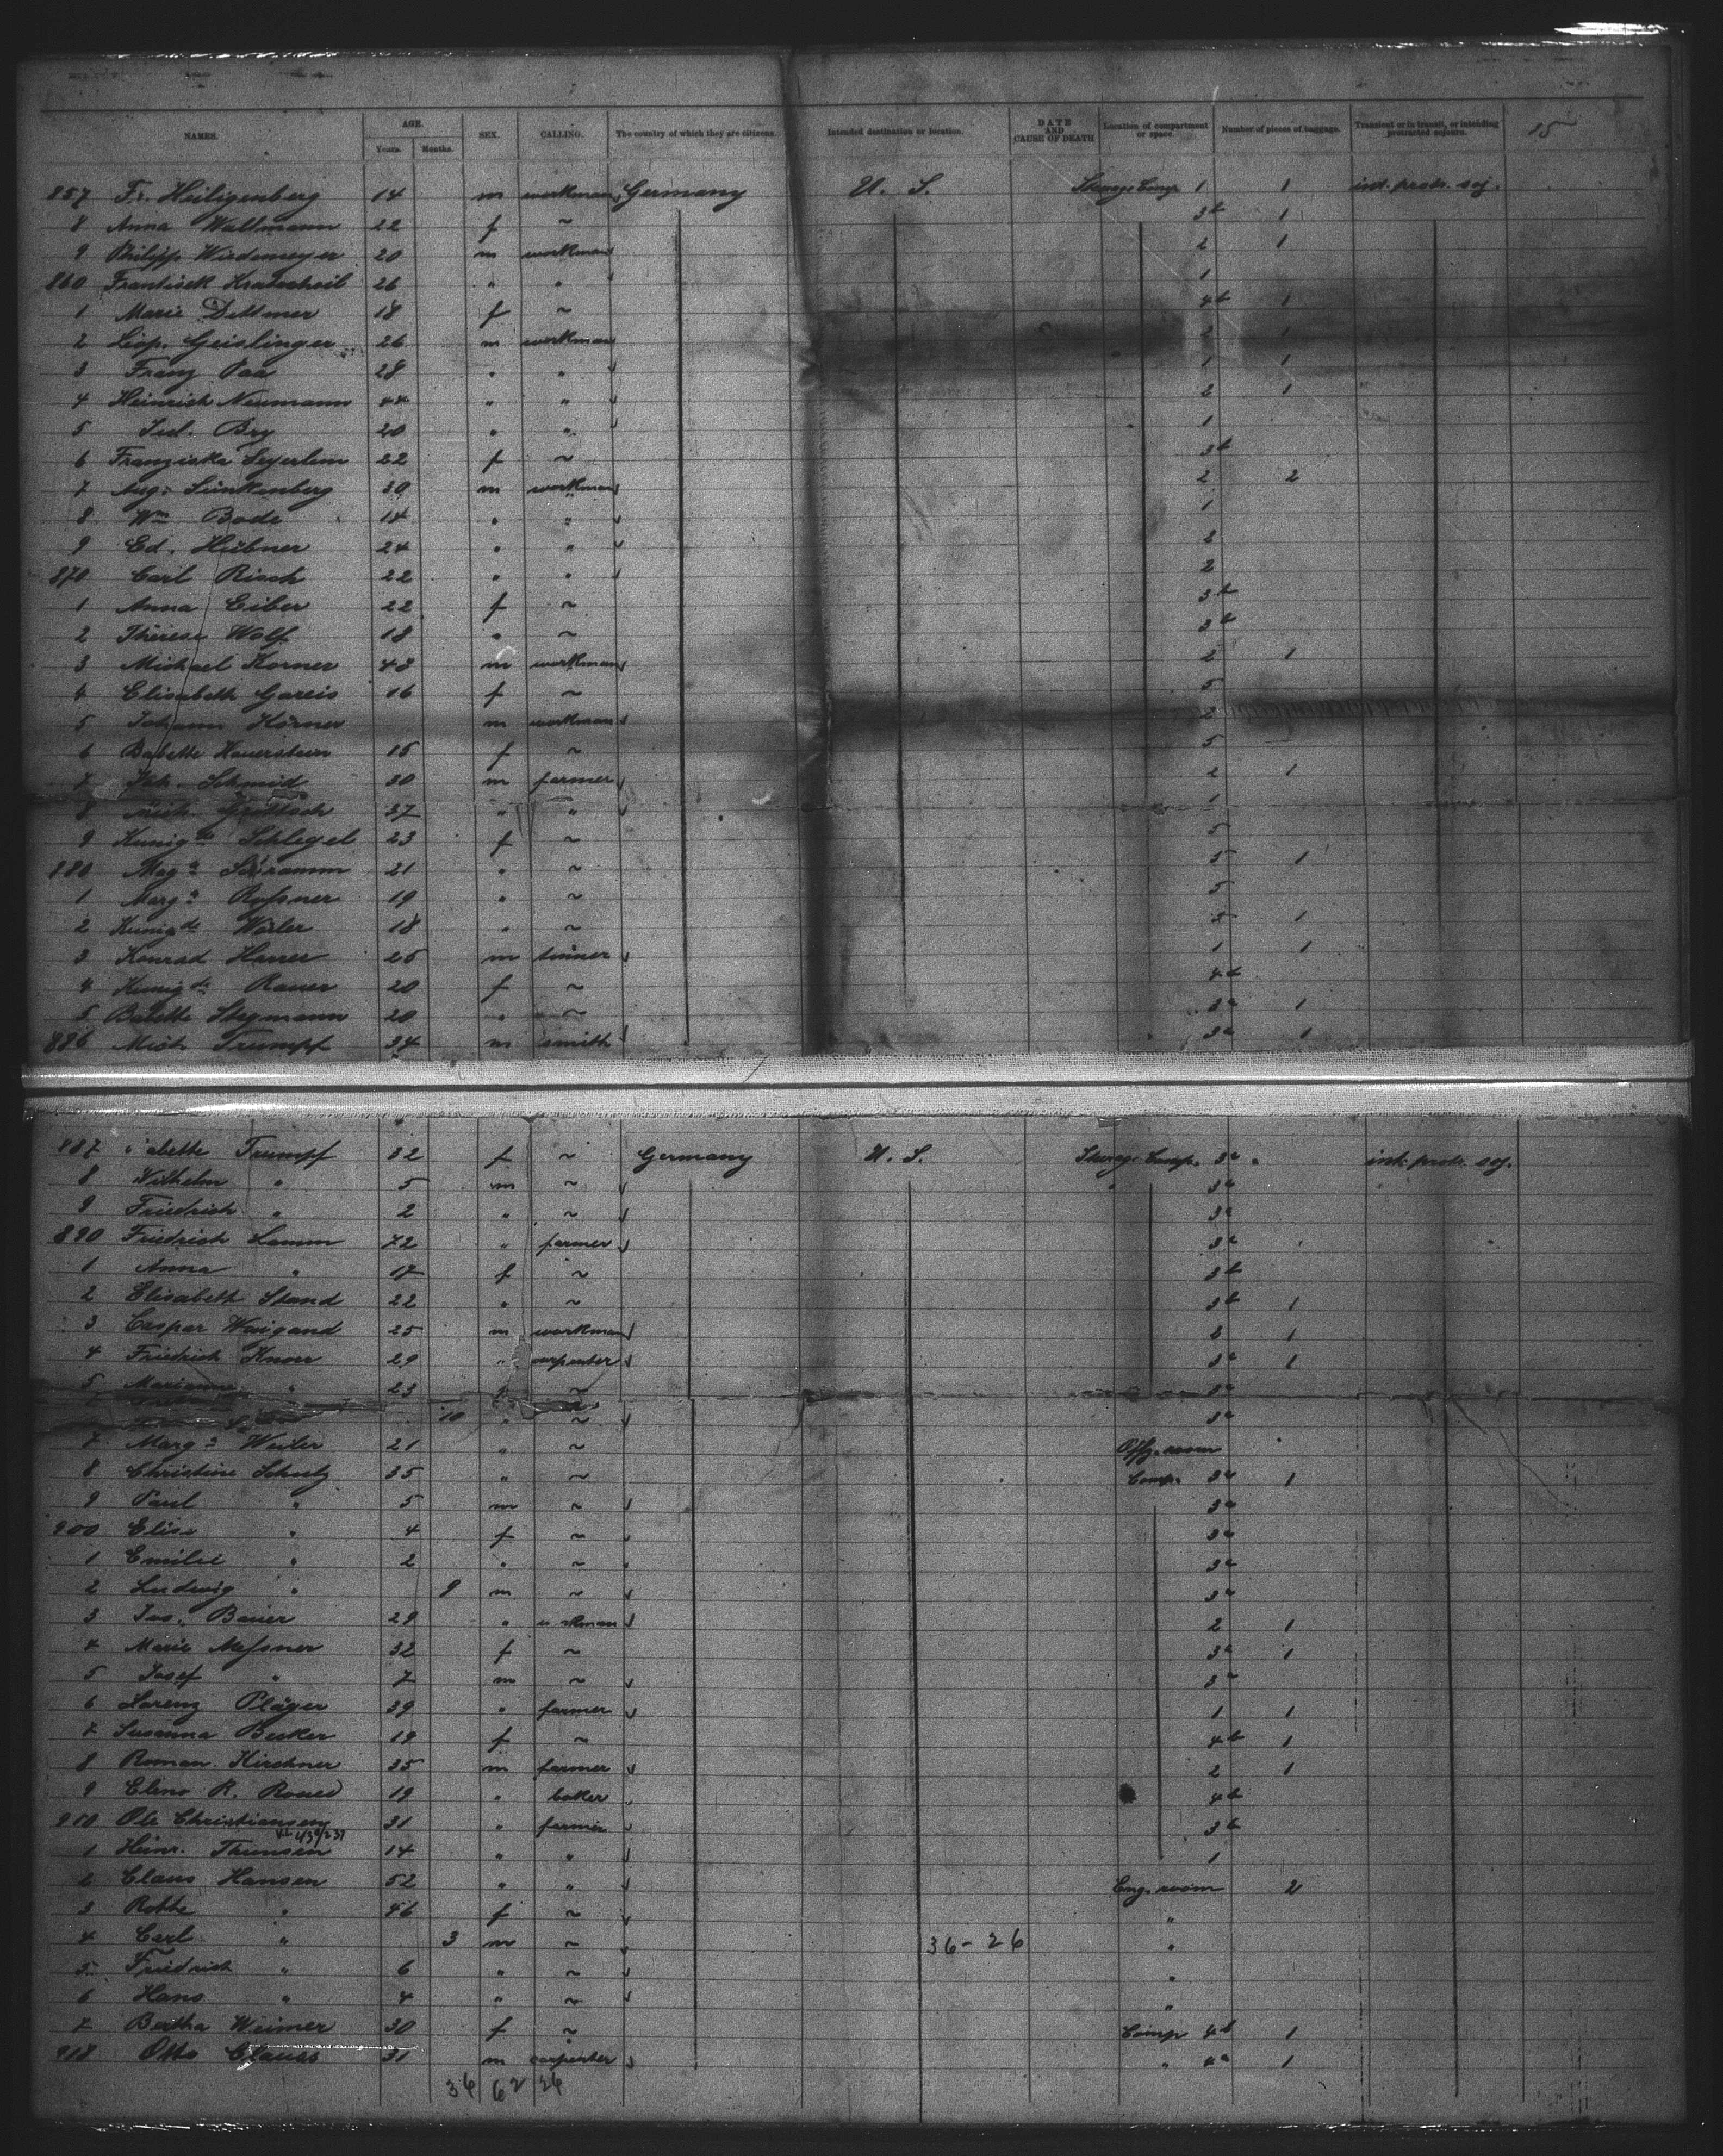 NAMES. AGE. Years. Months. SEX. CALLING. The country of which they are citizens. Intended destination or location. DATE AND CAUSE OF DEATH Location of compartment or space. Number of pieces of baggage. Transient or in transit, or intending protracted sojourn. 15
857 Fr. Heiligenberg 14 m workman Germany U. S. Steerage Comp. 1 1 int. protr. soj.
8 Anna Waltmann 22 f ~ 3b 1
9 Philipp Wiedemeyer 20 m workman 2 1
860 Frantisek 26 " " 1
1 Marie Dettmer 18 f ~ 4b 1
2 Leop. Geislinger 26 m workman 2 1
3 Franz Paa 28 " " 1 1
4 Heinrich Neumann 44 " " 2 1
5 Isid. Bry 20 " " 1
6 Franziska 22 f ~ 3b
7 Aug. Sünkenberg 30 m workman 2 2
8 Wm Bode 14 " " 1
9 Ed. Hübner 24 " " 2
870 Carl Risch 22 " " 2
1 Anna Eiber 22 f ~ 3b
2 Therese Wolf 18 " ~ 3b
3 Michael Korner 43 m workman 2 1
4 Elisabeth Gareis 16 f ~ 5
5 Johann Körner m workman 2
6 Babette Hauerstein 15 f ~ 5
7 Joh. Schmid 30 m farmer 2 1
8 37 " " 1
9 Kunigde Schlegel 23 f ~ 5
880 Maga Schramm 21 " ~ 5 1
1 Marga Roßner 19 " ~ 5
2 Kunigde 18 " ~ 5 1
3 Konrad Harrer 25 m tinner 1 1
4 Kunigde Rauer 20 f ~ 4b
5 Babette Stegmann 20 " ~ 3a 1
886 Mich Trumpf 34 m smith 3a 1
887 abette Trumpf 32 f ~ Germany U. S. Steerage Comp. 3a int. protr. soj.
8 Wilhelm " 5 m ~ 3a
9 Friedrich " 2 " ~ 3a
890 Friedrich Lamm 72 " farmer 3a
1 Anna " 17 f ~ 3b
2 Elisabeth Stand 22 " ~ 3b 1
3 Caspar Weigand 25 m workman 2 1
4 Friedrich Knorr 29 " carpenter 3a 1
5 Marianne " 23 ~ 3a
10 " ~ 3a
7 Marga Weiler 21 " ~ Offz. room
8 Christine Schulz 35 " ~ Comp. 3a 1
9 Paul " 5 m ~ 3a
900 Elise " 4 f ~ 3a
1 Emilie " 2 " ~ 3a
2 Ludwig " 9 m ~ 3a
3 Jos. Bauer 29 " workman 2 1
4 Marie Meßner 32 f ~ 3a 1
5 Josef " 7 m ~ 3a
6 Lorenz Pläger 39 " farmer 1 1
7 Susanna Becker 19 f ~ 4b 1
8 Roman Kirchner 35 m farmer 2 1
9 R. 19 " baker 4b
910 Ole Christiansen 31 " farmer 3b
1 Heinr. Thomsen 14 " " 1
2 Claus Hansen 52 " " Eng. room 2
3 " 46 f ~ "
4 Carl " 3 m ~ 36-26 "
5 Friedrich " 6 " ~ "
6 Hans " 4 " ~ "
7 Bertha Weimer 30 f ~ Comp 4b 1
918 Otto Clauss 31 m carpenter " 4a 1
36 62 26